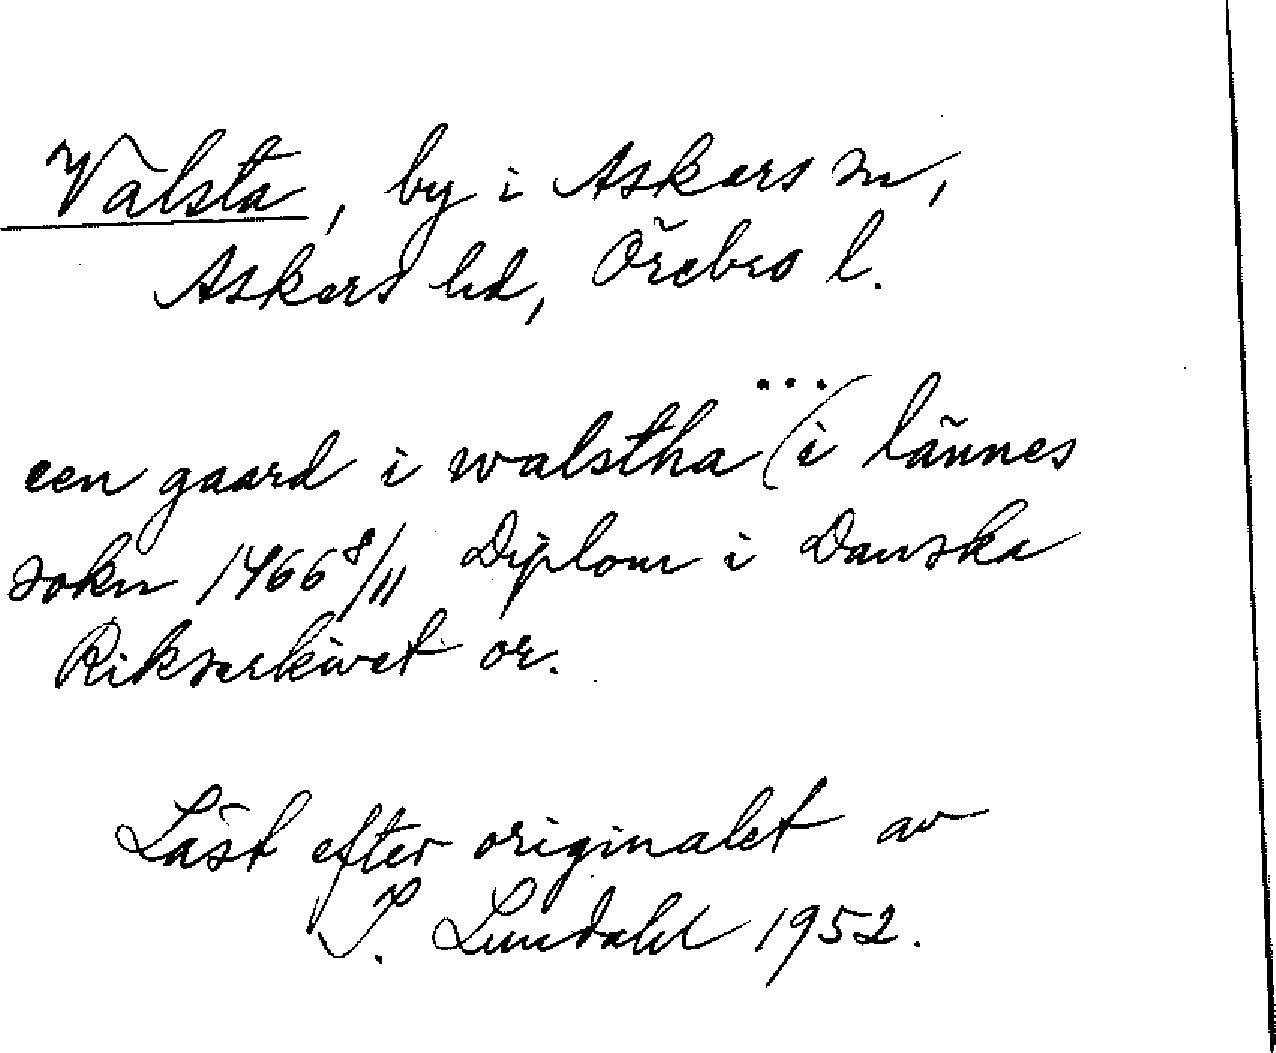 Välsta, by i Askers sn,
Askers hd, Örebro l.
een gaard i walstha ... (i lännes
sokn 1466 8/11 Diplom i Danska
Riksarkivet or.
Läst efter originalet av
I. Lundahl 1952.